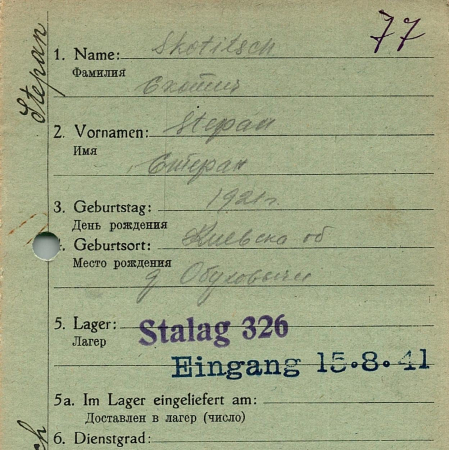 77
Stepan
1. Name: Skotitsch
Фамилия
Скотич
2. Vornamen: Stepan
Имя
Степан
3. Geburtstag: 1921 г.
День рождения
. Geburtsort: Киевска об
Место рождения
д Обуховичи
5. Lager: Stalag 326
Лагерь
Eingang 15.8.41
5a. Im Lager eingeliefert am:
Доставлен в лагерь (число)
6. Dienstgrad:
ch